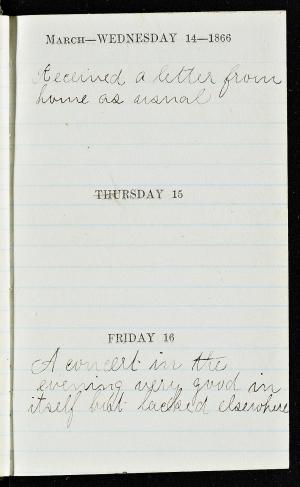 MARCH—WEDNESDAY 14—1866
Received a letter from
home as usual
THURSDAY 15
FRIDAY 16
A concert in the
evening very good in
itself but lacked elsewhere